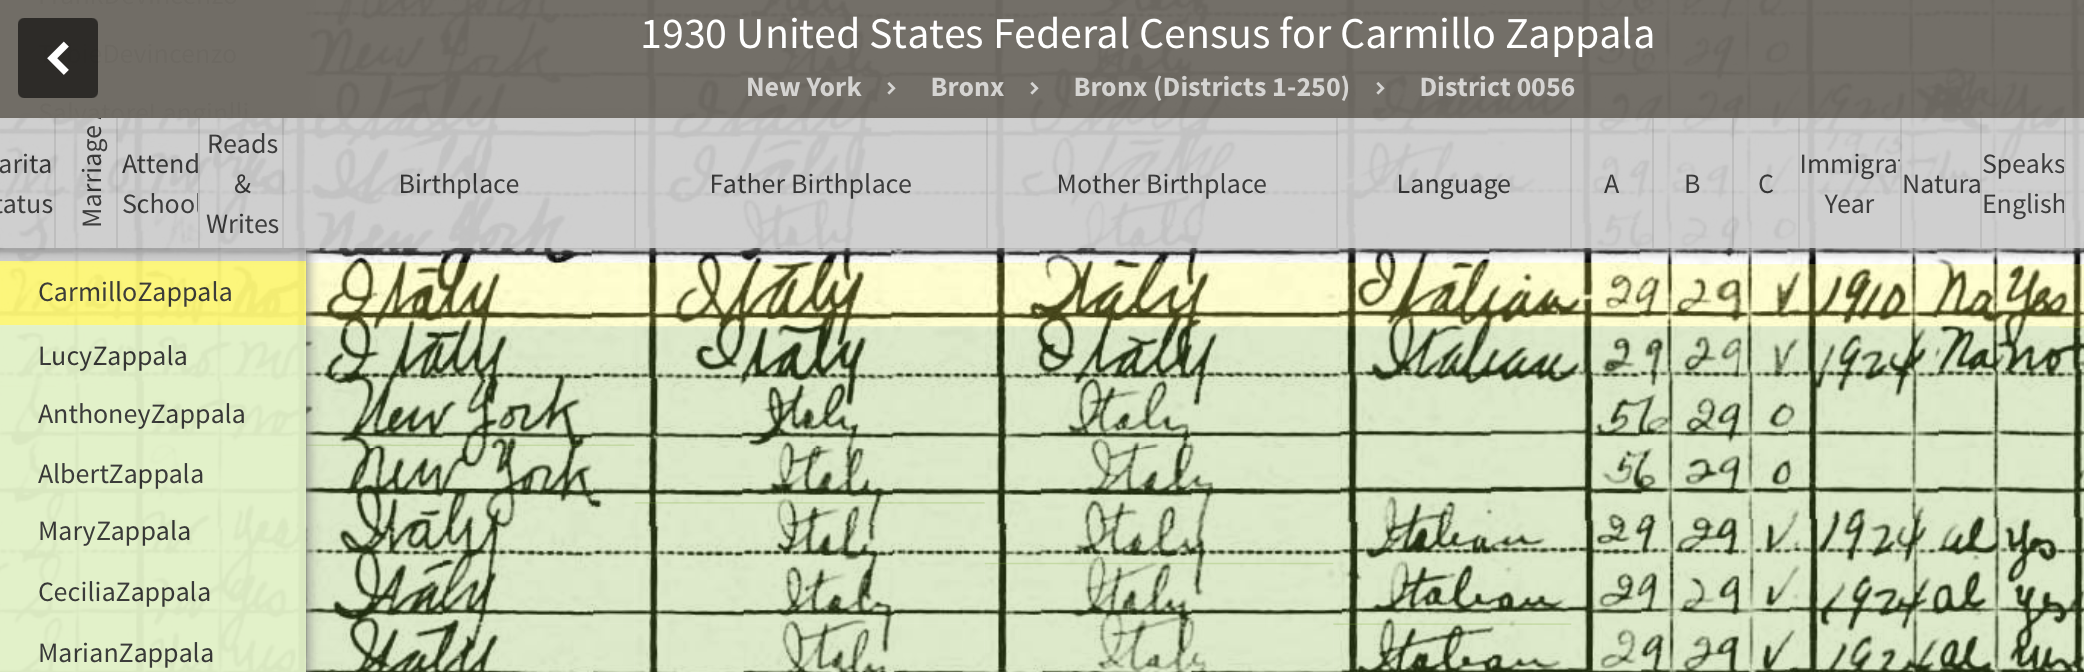 1930 United States Federal Census for Carmillo Zappala
New York › Bronx › Bronx (Districts 1-250) › District 0056
arita tatus Marriage Attend School Reads & Writes Birthplace Father Birthplace Mother Birthplace Language A B C Immigra Year Natura Speaks English
CarmilloZappala Italy Italy Italy Italian 29 29 V 1910 Na Yes
LucyZappala Italy Italy Italy Italian 29 29 V 1924 Na not
AnthoneyZappala New York Italy Italy 56 29 0
AlbertZappala New York Italy Italy 56 29 0
MaryZappala Italy Italy Italy Italian 29 29 V 1924 al yes
CeciliaZappala Italy Italy Italy Italian 29 29 V 1924 al yes
MarianZappala Italy Italy Italy Italian 29 29 V al